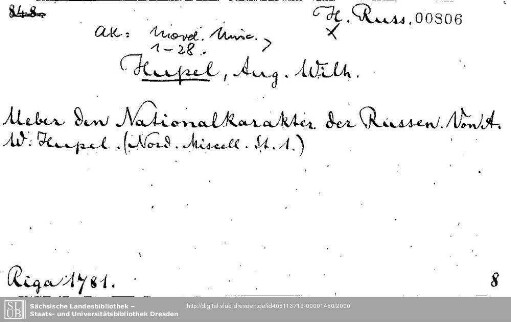 848.
H. Russ. 00806
AK: Nord. Misc.
1-28.
Hupel, Aug. Wilh.
Ueber den Nationalkarakter der Russen. Von A.
W. Hupel. (Nord. Miscell. St. 1.)
Riga 1781.
8
SLUB
Sächsische Landesbibliothek –
Staats- und Universitätsbibliothek Dresden